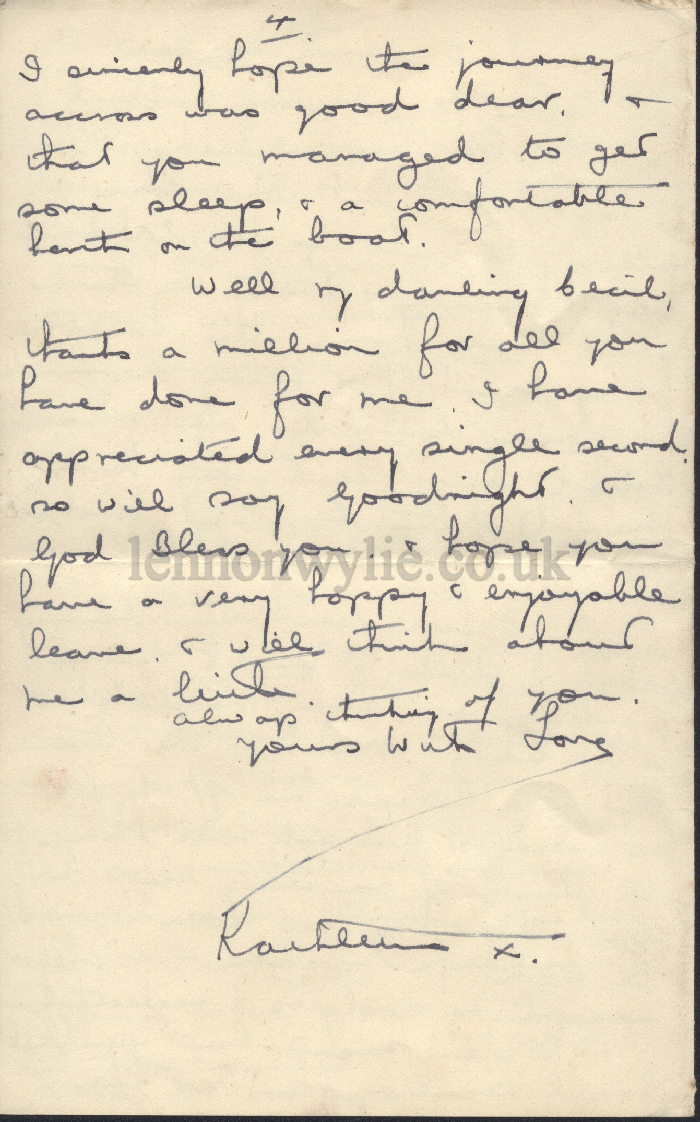 4
I sincerly hope the journey
accross was good dear. &
that you managed to get
some sleep, & a comfortable
berth on the boat.
Well my darling Cecil,
thanks a million for all you
have done for me. I have
appreciated every single second.
so will say goodnight. &
God Bless you. & hope you
lennonwylie.co.uk
have a very happy & enjoyable
leave. & will think about
me a little.
always thinking of you.
yours With Love
Kathleen x.